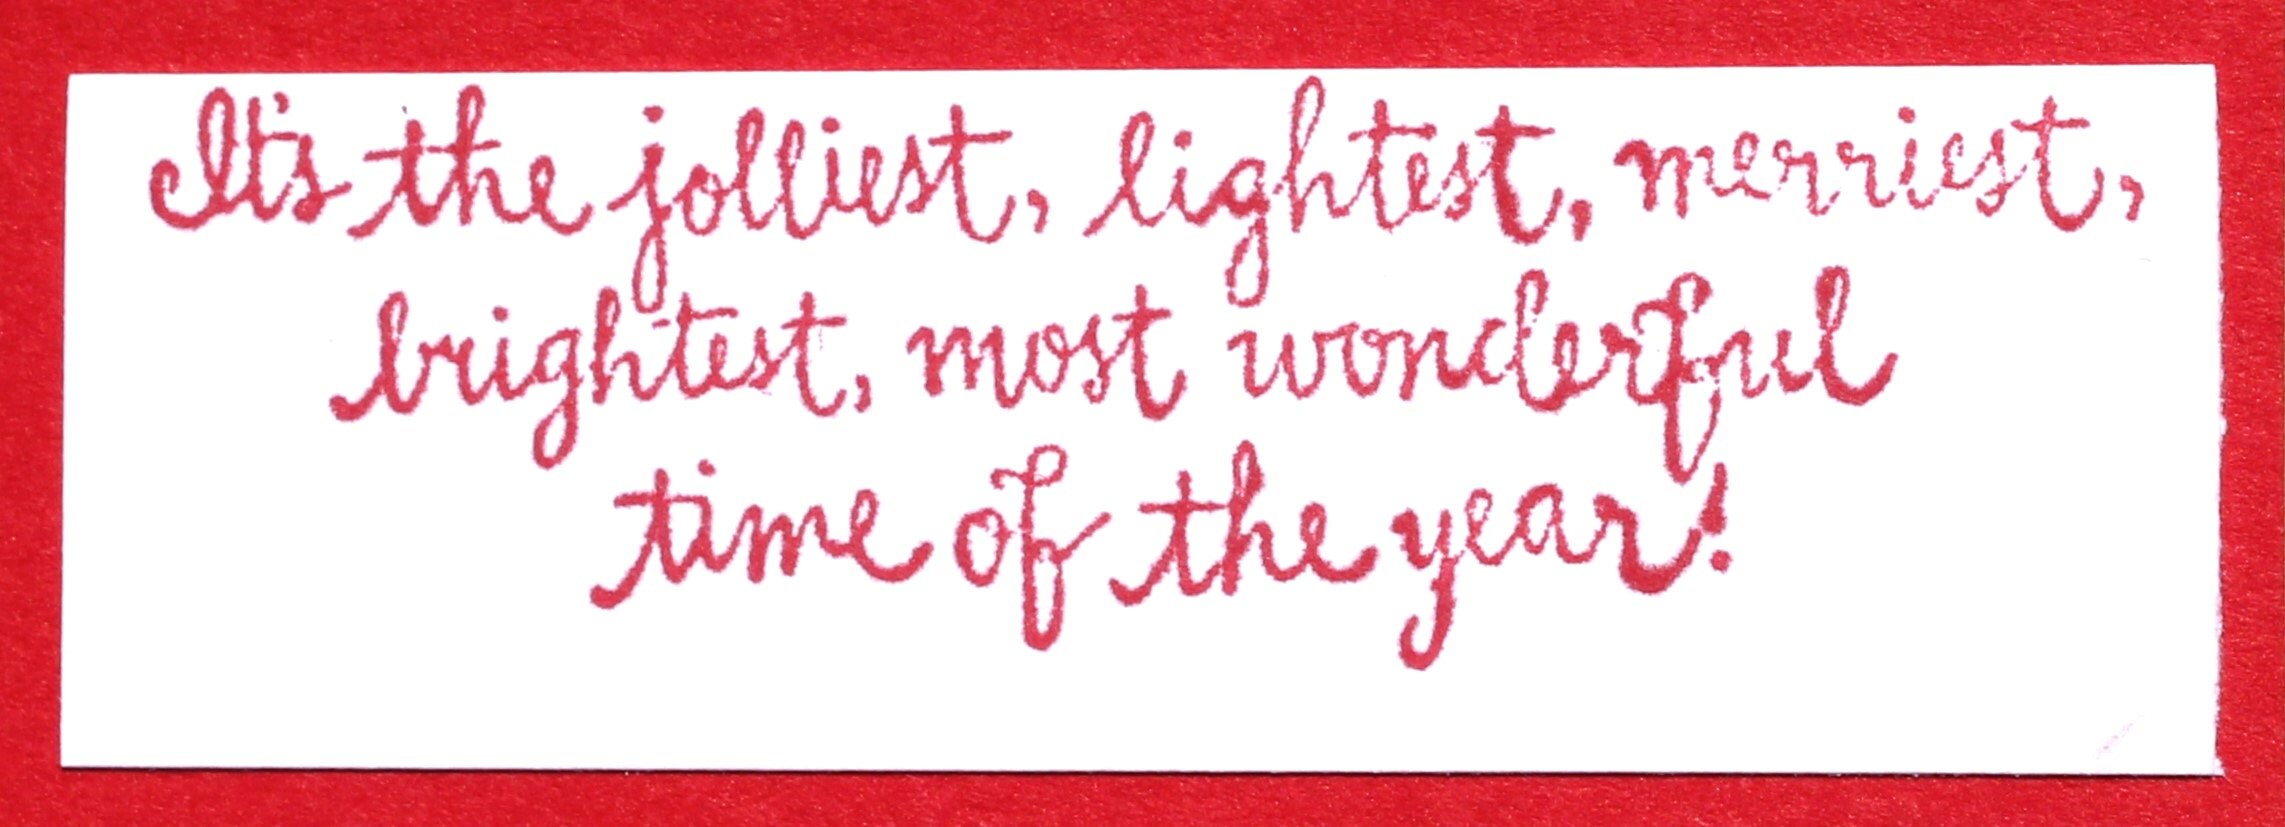 It's the jolliest, lightest, merriest,
brightest, most wonderful
time of the year!